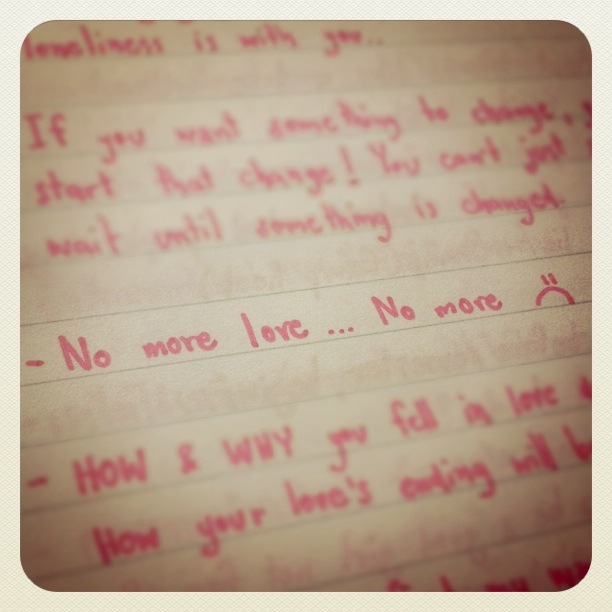 loneliness is with you..
If you want something to change,
start that change! You can't just
wait until something is changed.
- No more love ... No more
- HOW & WHY you fell in love
How your love's ending will